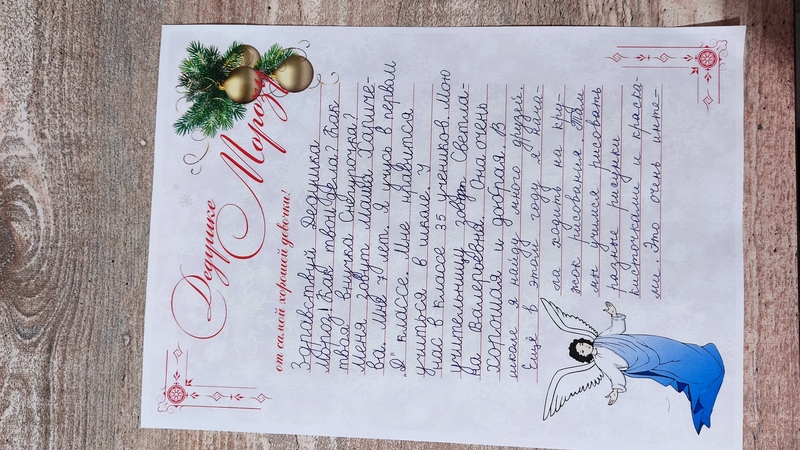 Дедушке
Морозу
от самой хорошей девочки!
Здравствуй Дедушка
Мороз! Как твои дела? Как
твоя внучка Снегурочка?
Меня зовут Маша Хариче-
ва. Мне 7 лет. Я учусь в первом
"Д" классе. Мне нравится
учиться в школе. У
нас в классе 35 учеников. Мою
учительницу зовут Светла-
на Валерьевна. Она очень
хорошая и добрая. В
школе я найду много друзей.
Ещё в этом году я нача-
ла ходить на кру-
жок рисования. Там
мы учимся рисовать
разные рисунки
кисточками и краска-
ми. Это очень инте-